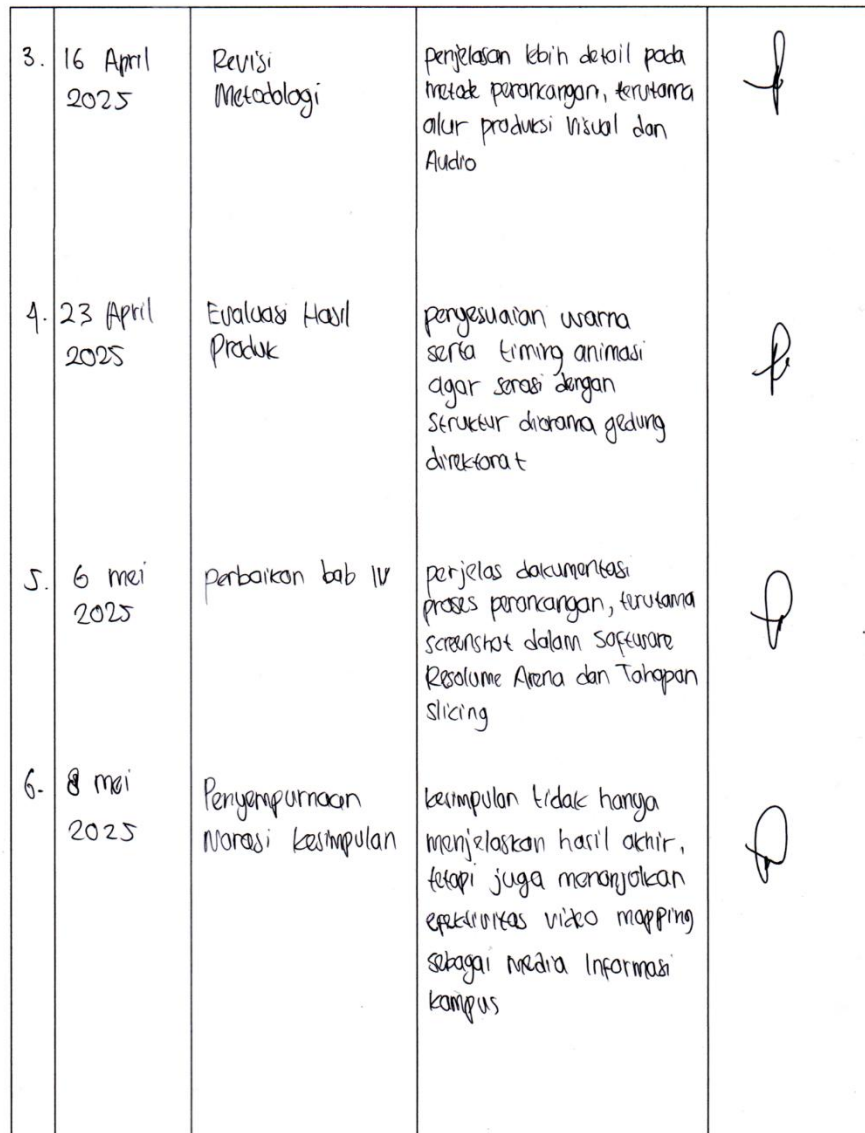 3. 16 April 2025
Revisi
Metodologi
penjelasan lebih detail pada
metode perancangan, terutama
alur produksi Visual dan
Audio
4. 23 April 2025
Evaluasi Hasil
Produk
penyesuaian warna
serta timing animasi
agar serasi dengan
struktur diorama gedung
direktorat
5. 6 mei 2025
perbaikan bab IV
perjelas dokumentasi
proses perancangan, terutama
screenshot dalam Software
Resolume Arena dan Tahapan
slicing
6. 8 mei 2025
Penyempurnaan
Narasi kesimpulan
kesimpulan tidak hanya
menjelaskan hasil akhir,
tetapi juga menonjolkan
efektivitas video mapping
sebagai media Informasi
kampus